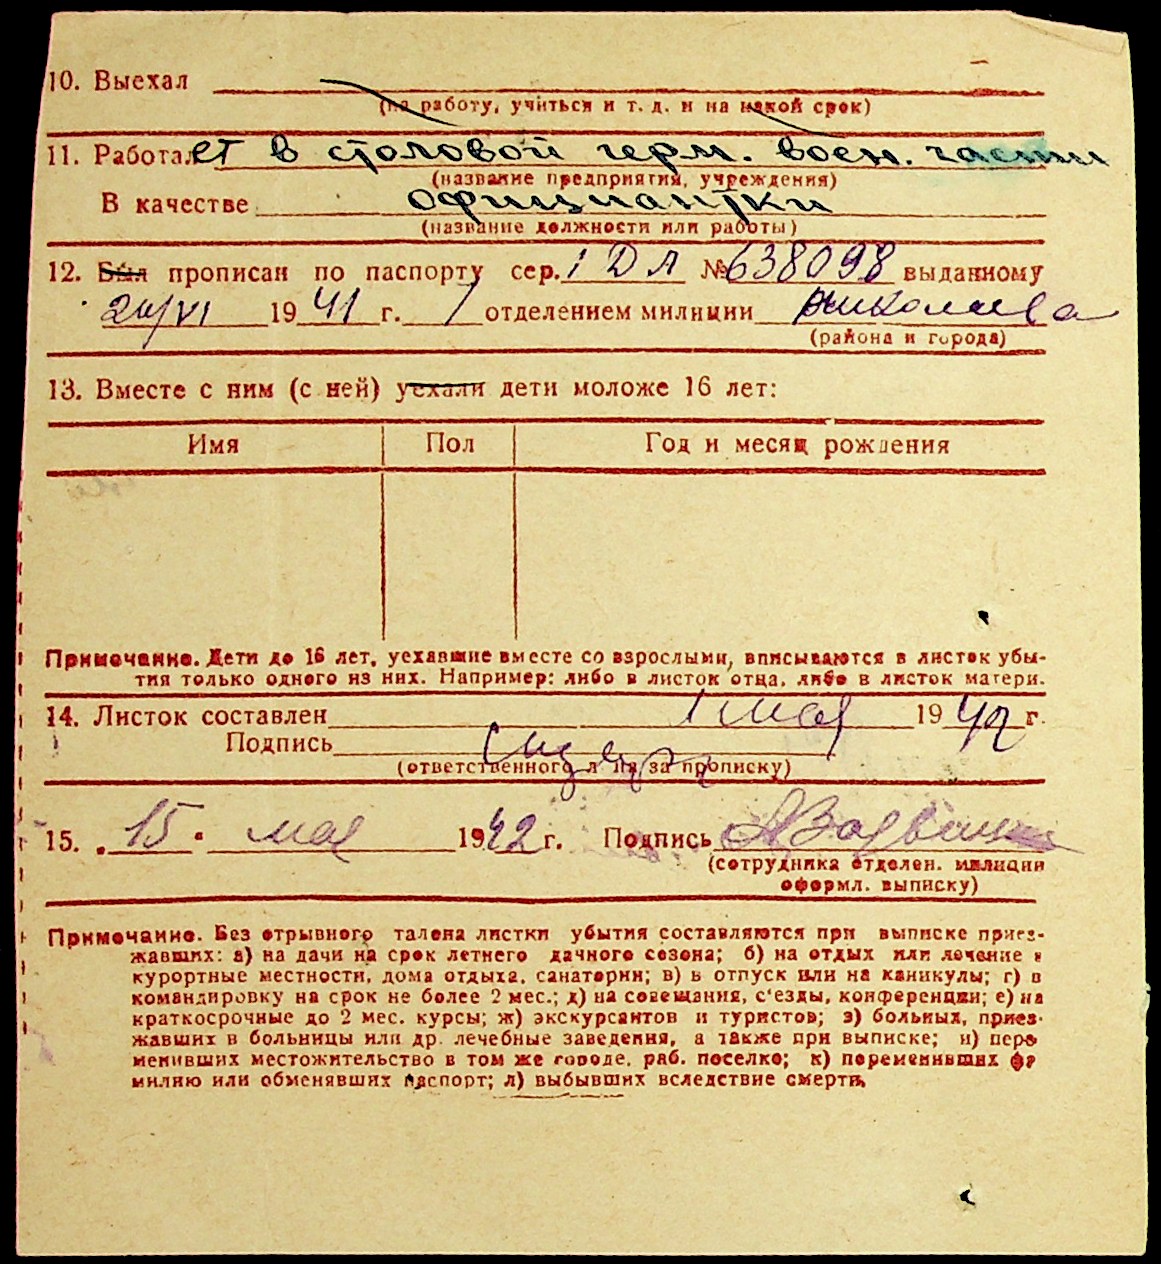 10. Выехал
(на работу, учиться и т. д. и на какой срок)
11. Работает в столовой герм. воен. части
(название предприятия, учреждения)
В качестве официантки
(название должности или работы)
12. Был прописан по паспорту сер. 1 ДЛ № 638098 выданному
1941 г. 1 отделением милиции Николаева
(района и города)
13. Вместе с ним (с ней) уехали дети моложе 16 лет:
Имя Пол Год и месяц рождения
Примечание. Дети до 16 лет, уехавшие вместе со взрослыми, вписываются в листок убы-
тия только одного из них. Например: либо в листок отца, либо в листок матери.
14. Листок составлен 1 мая 1942 г.
Подпись
(ответственного л за прописку)
15. 15 мая 1942 г. Подпись
(сотрудника отделен. милиции
оформл. выписку)
Примечание. Без отрывного талона листки убытия составляются при выписке приез-
жавших: а) на дачи на срок летнего дачного сезона; б) на отдых или лечение в
курортные местности, дома отдыха, санатории; в) в отпуск или на каникулы; г) в
командировку на срок не более 2 мес.; д) на совещания, с'езды, конференции; е) на
краткосрочные до 2 мес. курсы; ж) экскурсантов и туристов; з) больных, приез-
жавших в больницы или др. лечебные заведения, а также при выписке; и) пере
менивших местожительство в том же городе, раб. поселке; к) переменивших фа
милию или обменявших паспорт; л) выбывших вследствие смерти,